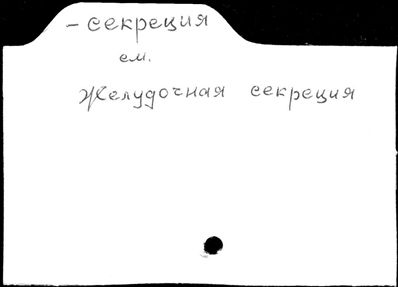 - секреция
см.
Желудочная секреция